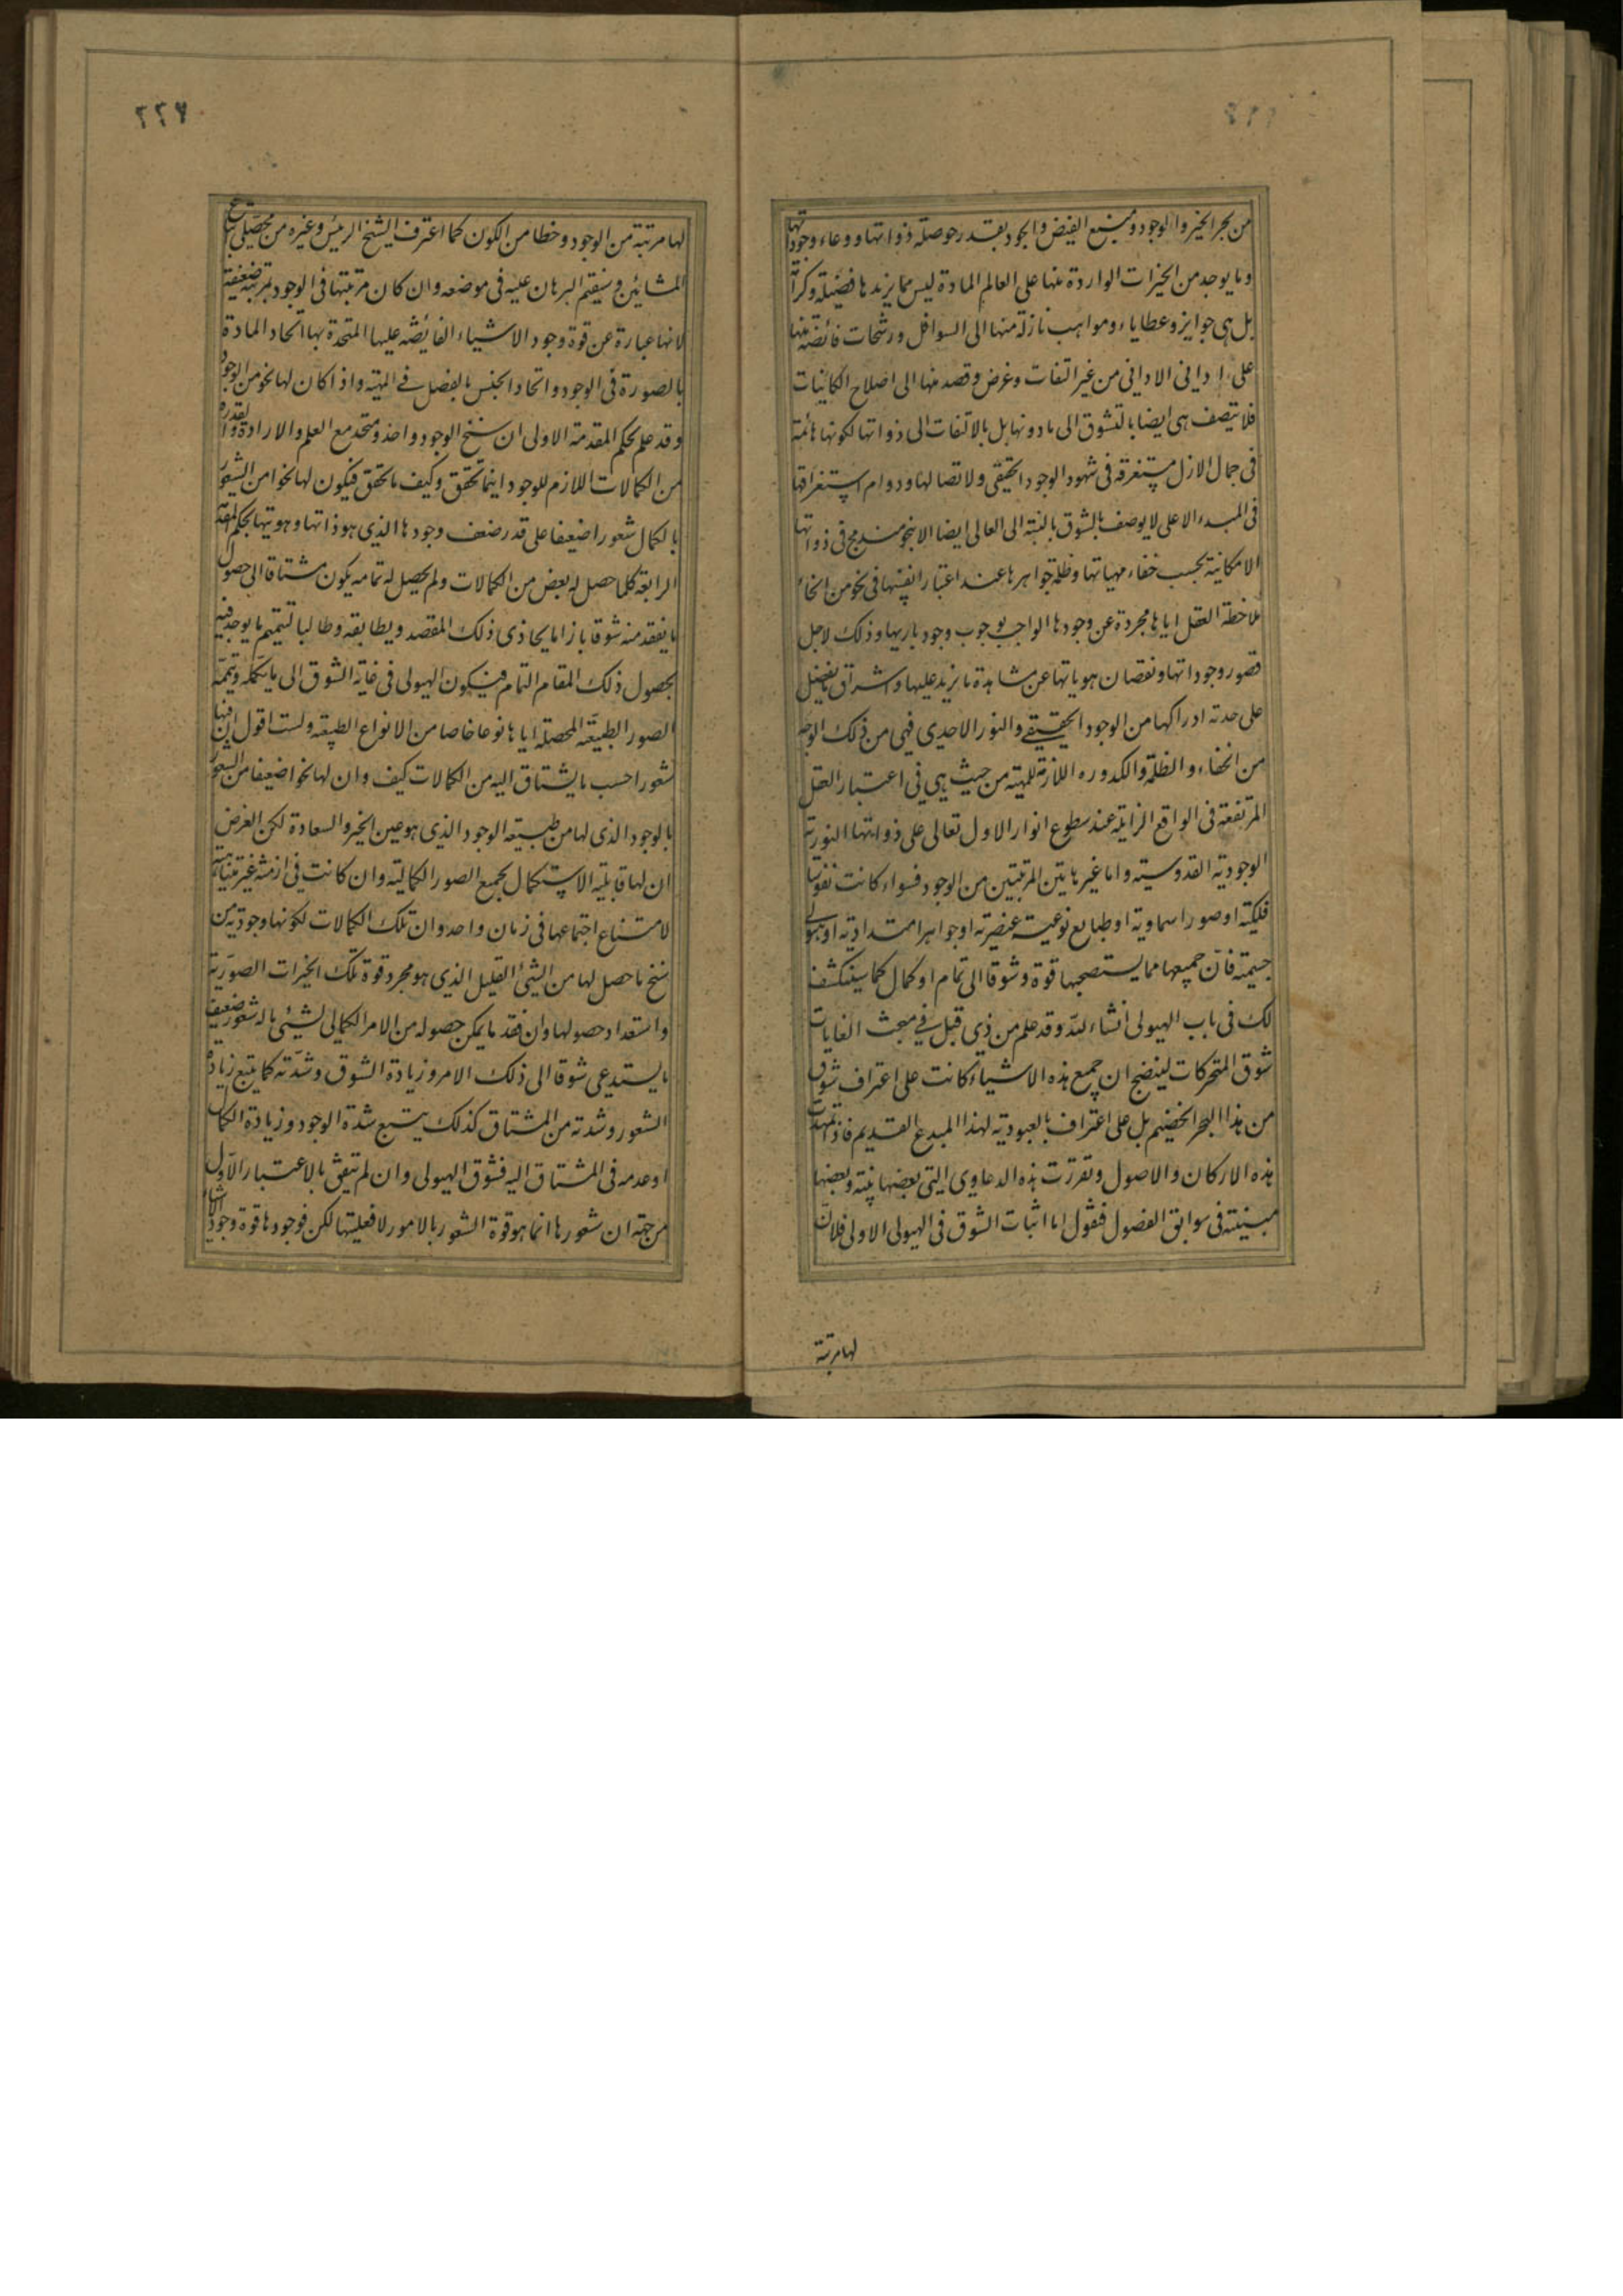 من بحر الخير والوجود ومنبع الفيض والجود بقدر حوصلة ذواتها ووعاء وجوداتها
وما يوجد من الخيرات الواردة منها على العالم المادة ليس مما يزيدها فضيلة وكرامة
بل هي جوايز وعطاياء ومواهب نازلة منها الى السوافل ورشحات فائضة منها
على اداني الاداني من غير التفات وغرض وقصد منها الى اصلاح الكائنات
فلا يتصف هي ايضا بالتشوق الى مادونها بل بالالتفات الى ذواتها لكونها هائمة
في جمال الازل مستغرقة في شهود الوجود الحقيقي ولاتصالها ودوام استغراقها
في المبدء الاعلى لا يوصف بالشوق بالنسبة الى العالي ايضا الا بنحو مندمج في ذواتها
الامكانية بحسب خفاء مهياتها وظلمة جواهرها عند اعتبار انفسها في نحو من انحاء
ملاحظة العقل اياها مجردة عن وجودها الواجب بوجوب وجود باريها وذلك لاجل
قصور وجوداتها ونقصان هوياتها عن مشاهدة ما يزيد عليها واشراق ما يفضل
على حدته ادراكها من الوجود الحقيقي والنور الاحدي فهي من ذلك الوجه
من الخفاء والظلمة والكدورة اللازمة للمهية من حيث هي في اعتبار العقل
المرتفعة في الواقع الزايلة عند سطوع انوار الاول تعالى على ذواتها النورية
الوجودية القدوسية واما غير هاتين المرتبتين من الوجود فسواء كانت نفوسا
فلكية او صورا سماوية او طبايع نوعية عنصرية او جواهر امتدادية او هيولي
جسمية فان جميعها مما يستصحبها قوة وشوقا الى تمام او كمال كما سينكشف
لك في باب الهيولى انشاء الله وقد علم من ذي قبل في مبحث الغايات
شوق المتحركات ليتضح ان جميع هذه الاشياء كانت على اعتراف شوق
من هذا البحر الخضيم بل على اعتراف بالعبودية لهذا المبدع القديم فاذا تمهدت
هذه الاركان والاصول وتقررت هذه الدعاوى التي بعضها بينة وبعضها
مبينة في سوابق الفصول فنقول اما اثبات الشوق في الهيولى الاولى فلان
لها مرتبة
٢٢٦
لها مرتبة من الوجود وحظا من الكون كما اعترف الشيخ الرئيس وغيره من محصلي اتباع
المشائين وسيقيم البرهان عليه في موضعه وان كان مرتبتها في الوجود مرتبة ضعيفة
لانها عبارة عن قوة وجود الاشياء الفايضة عليها المتحدة بها اتحاد المادة
بالصورة في الوجود واتحاد الجنس بالفصل في المهية واذا كان لها نحو من الوجود
وقد علم بحكم المقدمة الاولى ان سنخ الوجود واحد ومتحد مع العلم والارادة والقدرة
من الكمالات اللازم للوجود اينما تحقق وكيف ما تحقق فيكون لها نحوا من الشعور
بالكمال شعورا ضعيفا على قدر ضعف وجودها الذي هو ذاتها وهويتها بحكم المقدمة
الرابعة كلما حصل له بعض من الكمالات ولم يحصل له تمامه يكون مشتاقا الى حصول
ما يفقد منه شوقا بازاء ما يحاذى ذلك المقصد ويطابقه وطالبا لتتميم ما يوجد فيه
بحصول ذلك المقام التمام فيكون الهيولى في غاية الشوق الى ما يكمله ويتممه
الصور الطبيعة المحصلة اياها نوعا خاصا من الانواع الطبيعة ولست اقول ان فيها
شعورا حسب ما يشتاق اليه من الكمالات كيف وان لها نحوا ضعيفا من الشعور
بالوجود الذي لها من طبيعة الوجود الذي هو عين الخير والسعادة لكن الغرض
ان لها قابلية الاستكمال بجميع الصور الكمالية وان كانت في ازمنة غير متناهية
لامتناع اجتماعها في زمان واحد وان تلك الكمالات لكونها وجودية من
سنخ ما حصل لها من الشئ القليل الذي هو مجرد قوة تلك الخيرات الصورية
واستعداد حصولها وان فقد ما يمكن حصوله من الامر الكمالي لشئي ما له شعور ضعيف
ما يستدعى شوقا الى ذلك الامر وزيادة الشوق وشدته كما يتبع زيادة
الشعور وشدته من المشتاق كذلك يستتبع شدة الوجود وزيادة الكمال
او عدمه في المشتاق اليه فشوق الهيولى وان لم تيقن بالاعتبار الاول
من جهة ان شعورها انما هو قوة الشعور بالامور لا فعليتها لكن فوجودها قوة وجود الاشياء